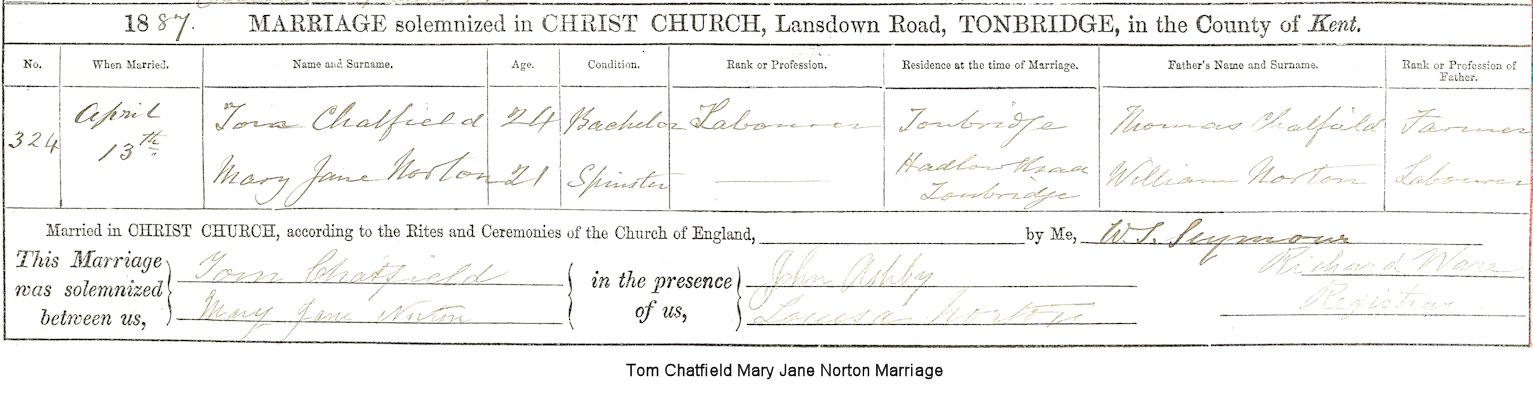 1887. MARRIAGE solemnized in CHRIST CHURCH, Lansdown Road, TONBRIDGE, in the County of Kent.
No. When Married. Name and Surname. Age. Condition. Rank or Profession. Residence at the time of Marriage. Father's Name and Surname. Rank or Profession of Father.
324 April 13th Tom Chatfield 24 Bachelor Labourer Tonbridge Thomas Chatfield Farmer
Mary Jane Norton 21 Spinster —— Hadlow Road Tonbridge William Norton Labourer
Married in CHRIST CHURCH, according to the Rites and Ceremonies of the Church of England, by Me, W. S. Seymour
This Marriage was solemnized between us, Tom Chatfield in the presence of us, John Ashby Richard Ware
Mary Jane Norton Louisa Norton Registrar
Tom Chatfield Mary Jane Norton Marriage